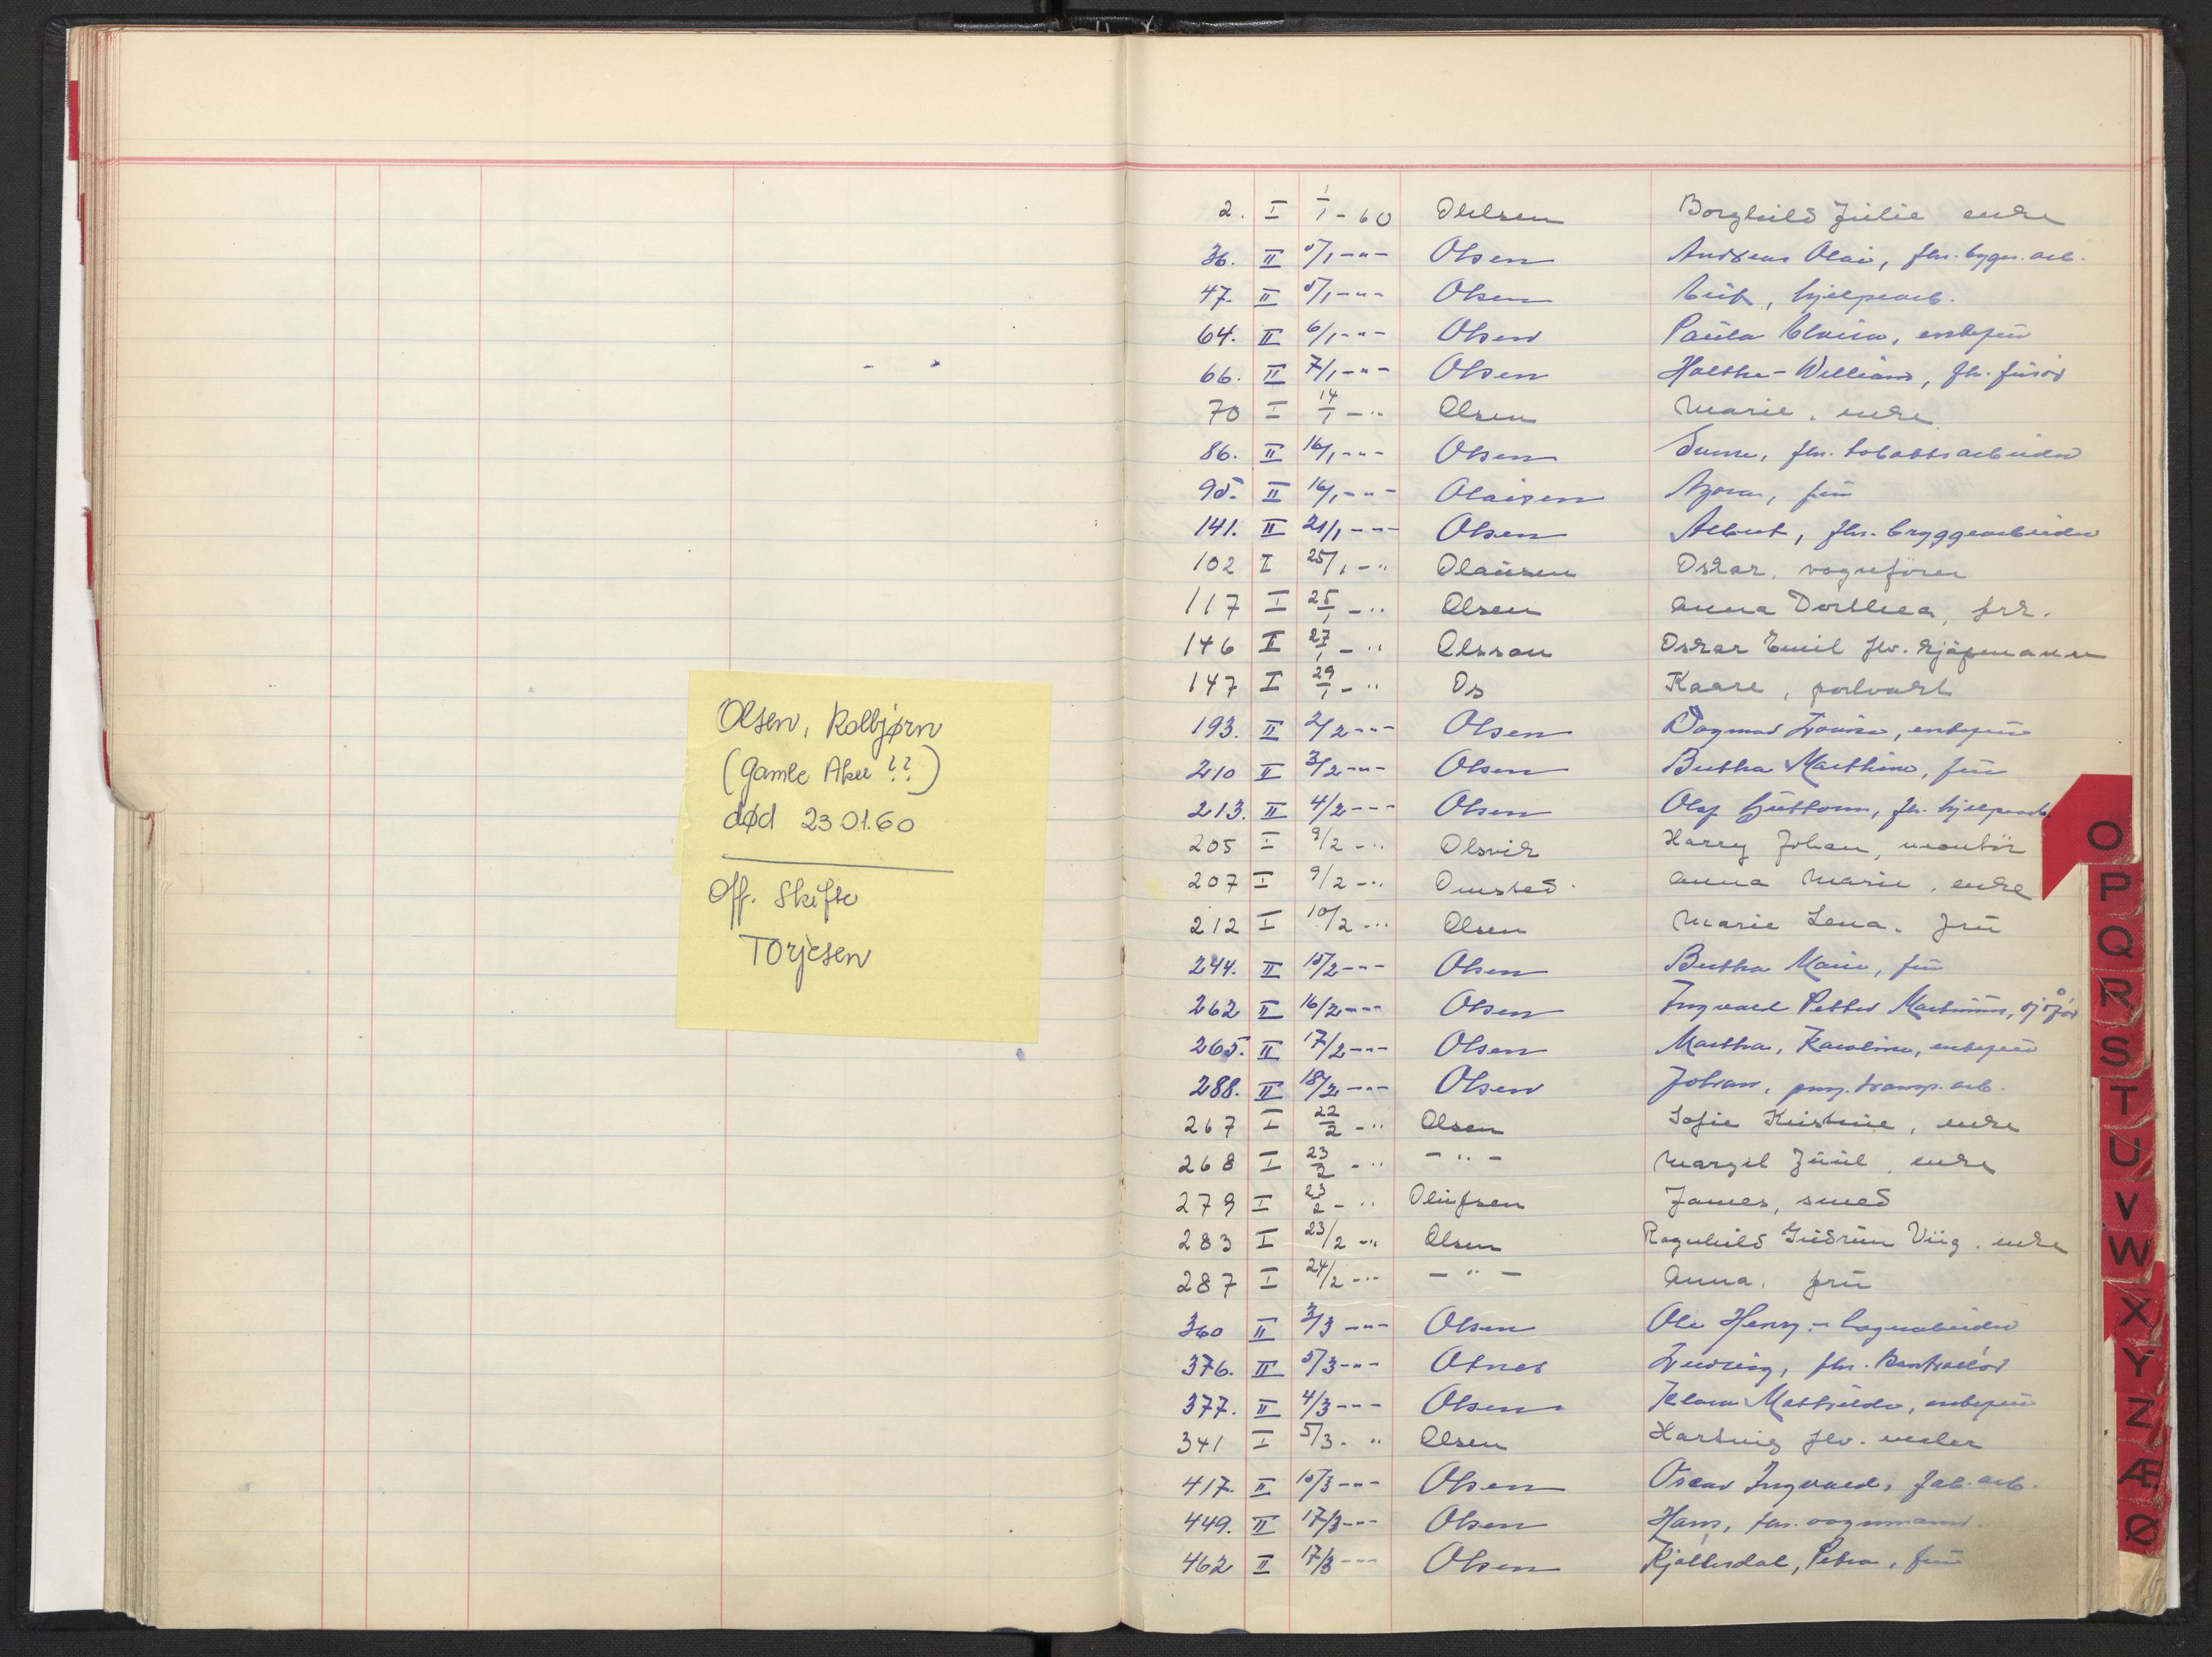 Olsen, Kolbjørn
(Gamle Aker ??)
død 23.01.60
Off. Skifte
Torjesen
2. I 1/1 - 60 Ohlsen Borghild Julie enke
36. II 5/1 -"- Olsen Andreas Olai, fhv. bygn. arb.
47. II 5/1 -"- Olsen hjelpearb.
64. II 6/1 -"- Olsen Paula enkefru
66. II 7/1 -"- Olsen William, fh.
70 I 14/1 -" Olsen Marie, enke
86. II 16/1 -"- Olsen fhv. tobakksarbeider
95. II 16/1 -"- Olaisen fru
141. II 21/1 -"- Olsen Albert, fhv. bryggearbeider
102 I 25/1 -" Olausen Oskar, vognfører
117 I 25/1 -" Olsen Anna Dorthea, frk.
146 I 27/1 -" Olsson Oskar Emil fhv. kjøpmann
147 I 29/1 -" Os Kaare, portvakt
193. II 2/2 -"- Olsen Dagmar Lovise, enkefru
210 II 3/2 -"- Olsen Bertha Marthine, fru
213. II 4/2 -"- Olsen Olaf Guttorm, fh. hjelpearb.
205 I 9/2 -" Olsvik Harry Johan, montör
207 I 9/2 -" Omsted Anna Marie, enke
212 I 10/2 -" Olsen Marie Lena, fru
244. II 15/2 -"- Olsen Bertha Marie, fru
262 II 16/2 -"- Olsen Ingvald Petter Martinius, sjåfør
265. II 17/2 -"- Olsen Martha, Karoline, enkefru
288. II 18/2 -"- Olsen Johan, pens. transp. arb.
267 I 22/2 -" Olsen Sofie Kristine, enke
268 I 23/2 -" -"- Margit Juul, enke
279 I 23/2 -" Olufsen James, smed
283 I 23/2 -" Olsen Ragnhild Gudrun Viig, enke
287 I 24/2 -" -"- Anna, fru
360 II 3/3 -"- Olsen Ole Henry - lagerarbeider
376. II 5/3 -"- Ludvig, fhv.
377. II 4/3 -"- Olsen Klara Mathilde, enkefru
341 I 5/3 . " Olsen Hartvig fhv. maler
417. II 15/3 -"- Olsen Oscar Ingvald, fab. arb.
449. II 17/3 -"- Olsen Hans, fhv. vognmann.
462 II 17/3 -"- Olsen Kjølberdal, Petra, fru
O
P
Q
R
S
T
U
V
W
X
Y
Z
Æ
Ø